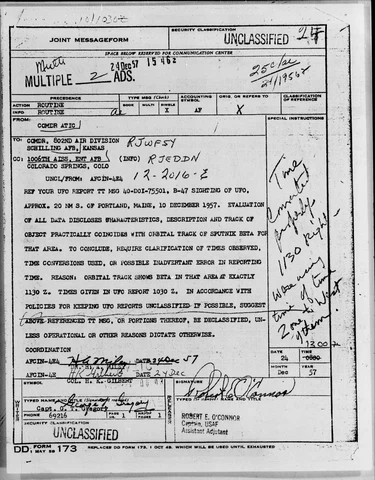 JOINT MESSAGEFORM
SECURITY CLASSIFICATION
UNCLASSIFIED
SPACE BELOW RESERVED FOR COMMUNICATION CENTER
24 Dec 57 15 46z
MULTIPLE 2 ADS.
PRECEDENCE
TYPE MSG (Check)
ACCOUNTING SYMBOL
ORIG. OR REFERS TO
CLASSIFICATION OF REFERENCE
ACTION ROUTINE
BOOK MULTI SINGLE
INFO ROUTINE
X AF X
FROM:
COMDR ATIC
SPECIAL INSTRUCTIONS
TO: COMDR, 802ND AIR DIVISION RJWPSY
SCHILLING AFB, KANSAS
CC: 1006TH AISS, ENT AFB (INFO) RJEDDN
COLORADO SPRINGS, COLO
UNCL/FROM: AFCIN-4E4 12-2016-E
REF YOUR UFO REPORT TT MSG 40-DOI-75501, B-47 SIGHTING OF UFO,
APPROX. 20 NM S. OF PORTLAND, MAINE, 10 DECEMBER 1957. EVALUATION
OF ALL DATA DISCLOSES CHARACTERISTICS, DESCRIPTION AND TRACK OF
OBJECT PRACTICALLY COINCIDES WITH ORBITAL TRACK OF SPUTNIK BETA FOR
THAT AREA. TO CONCLUDE, REQUIRE CLARIFICATION OF TIMES OBSERVED,
TIME CONVERSIONS USED, OR POSSIBLE INADVERTENT ERROR IN REPORTING
TIME. REASON: ORBITAL TRACK SHOWS BETA IN THAT AREA AT EXACTLY
1130 Z. TIMES GIVEN IN UFO REPORT 1030 Z. IN ACCORDANCE WITH
POLICIES FOR KEEPING UFO REPORTS UNCLASSIFIED IF POSSIBLE, SUGGEST
ABOVE REFERENCED TT MSG, OR PORTIONS THEREOF, BE DECLASSIFIED, UN-
LESS OPERATIONAL OR OTHER REASONS DICTATE OTHERWISE.
Time
converted
properly
1130 Right -
were using
time of time
Zone to West
of them.
1300 Z
COORDINATION
AFCIN-4E4 DATE 24 Dec 57
AFCIN-4E DATE 24 Dec
COL. H. K. GILBERT
DATE
24
TIME
MONTH
Dec
YEAR
57
SYMBOL
AFCIN-4E4
SIGNATURE
Capt. G. T. Gregory
PHONE 69216
PAGE 1
PAGES 1
SECURITY CLASSIFICATION
UNCLASSIFIED
ROBERT E. O'CONNOR
Captain, USAF
Assistant Adjutant
DD FORM 173
REPLACES DD FORM 173, 1 OCT 49, WHICH WILL BE USED UNTIL EXHAUSTED